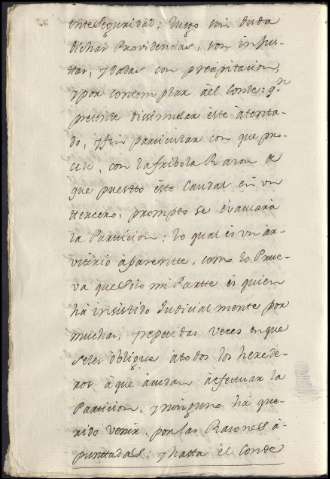 te Seguridad; luego sin duda
dichas Providencias, son injus-
tas, y dadas con precipitacion,
y por contemplar al Conde; qn
pretende disimular este atenta-
do, y sin particular con que pro-
cede, con la fribola Razon de
que puesto este Caudal en un
tercero, prompto se evacuará
la Particion: lo qual es un ar-
vitrio aparente, como lo Prue-
va que solo mi Parte es quien
há insistido Judicialmente por
muchas, y repetidas veces en que
se les obligue á todos los herede-
ros á que acudan á efectuar la
Particion, y ninguno há que-
rido venir, por las Razones á-
puntadas: y hasta el Conde